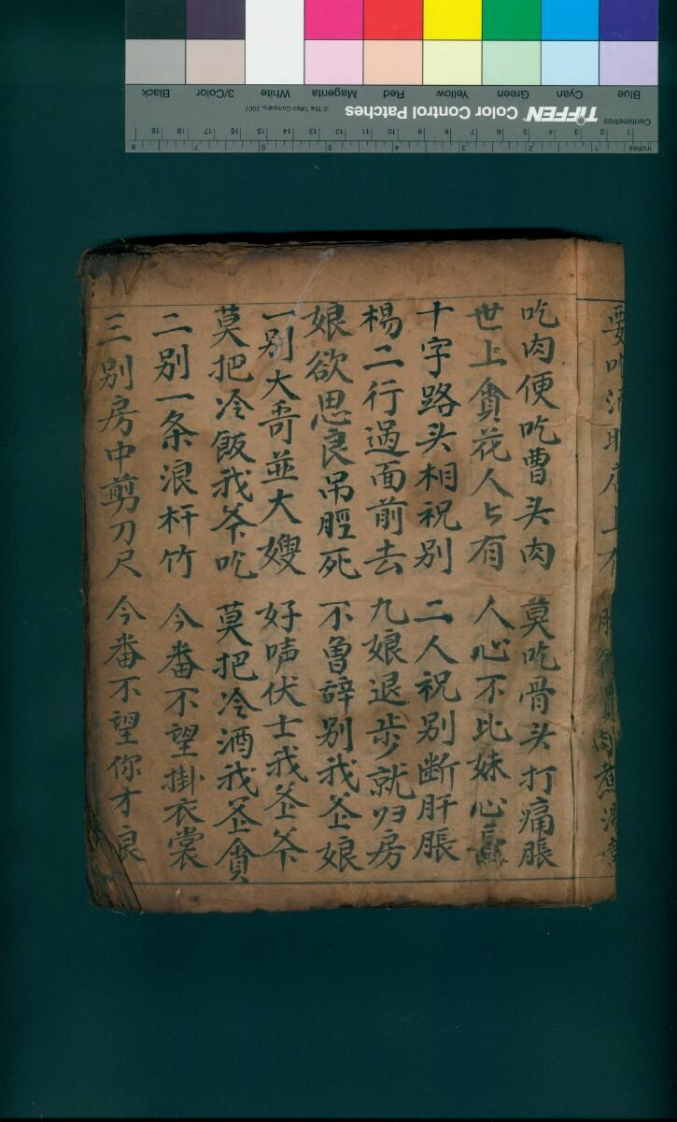 Blue Cyan Green Yellow Red Magenta White 3/Color Black
Centimetres TIFFEN Color Control Patches © The Tiffen Company, 2007
Inches
要吃酒
吃肉便吃曹头肉 莫吃骨头打痛脹
世上貪花人有 人心不比妹心
十字路头相祝别 二人祝别断肝脹
楊二行過面前去 九娘退步就归房
娘欲思良吊脛死 不曾辞别我爷娘
一别大哥並大嫂 好伏士我爷
莫把冷飯我爷吃 莫把冷酒我爷貪
二别一条浪杆竹 今番不望掛衣裳
三别房中剪刀尺 今番不望你才良